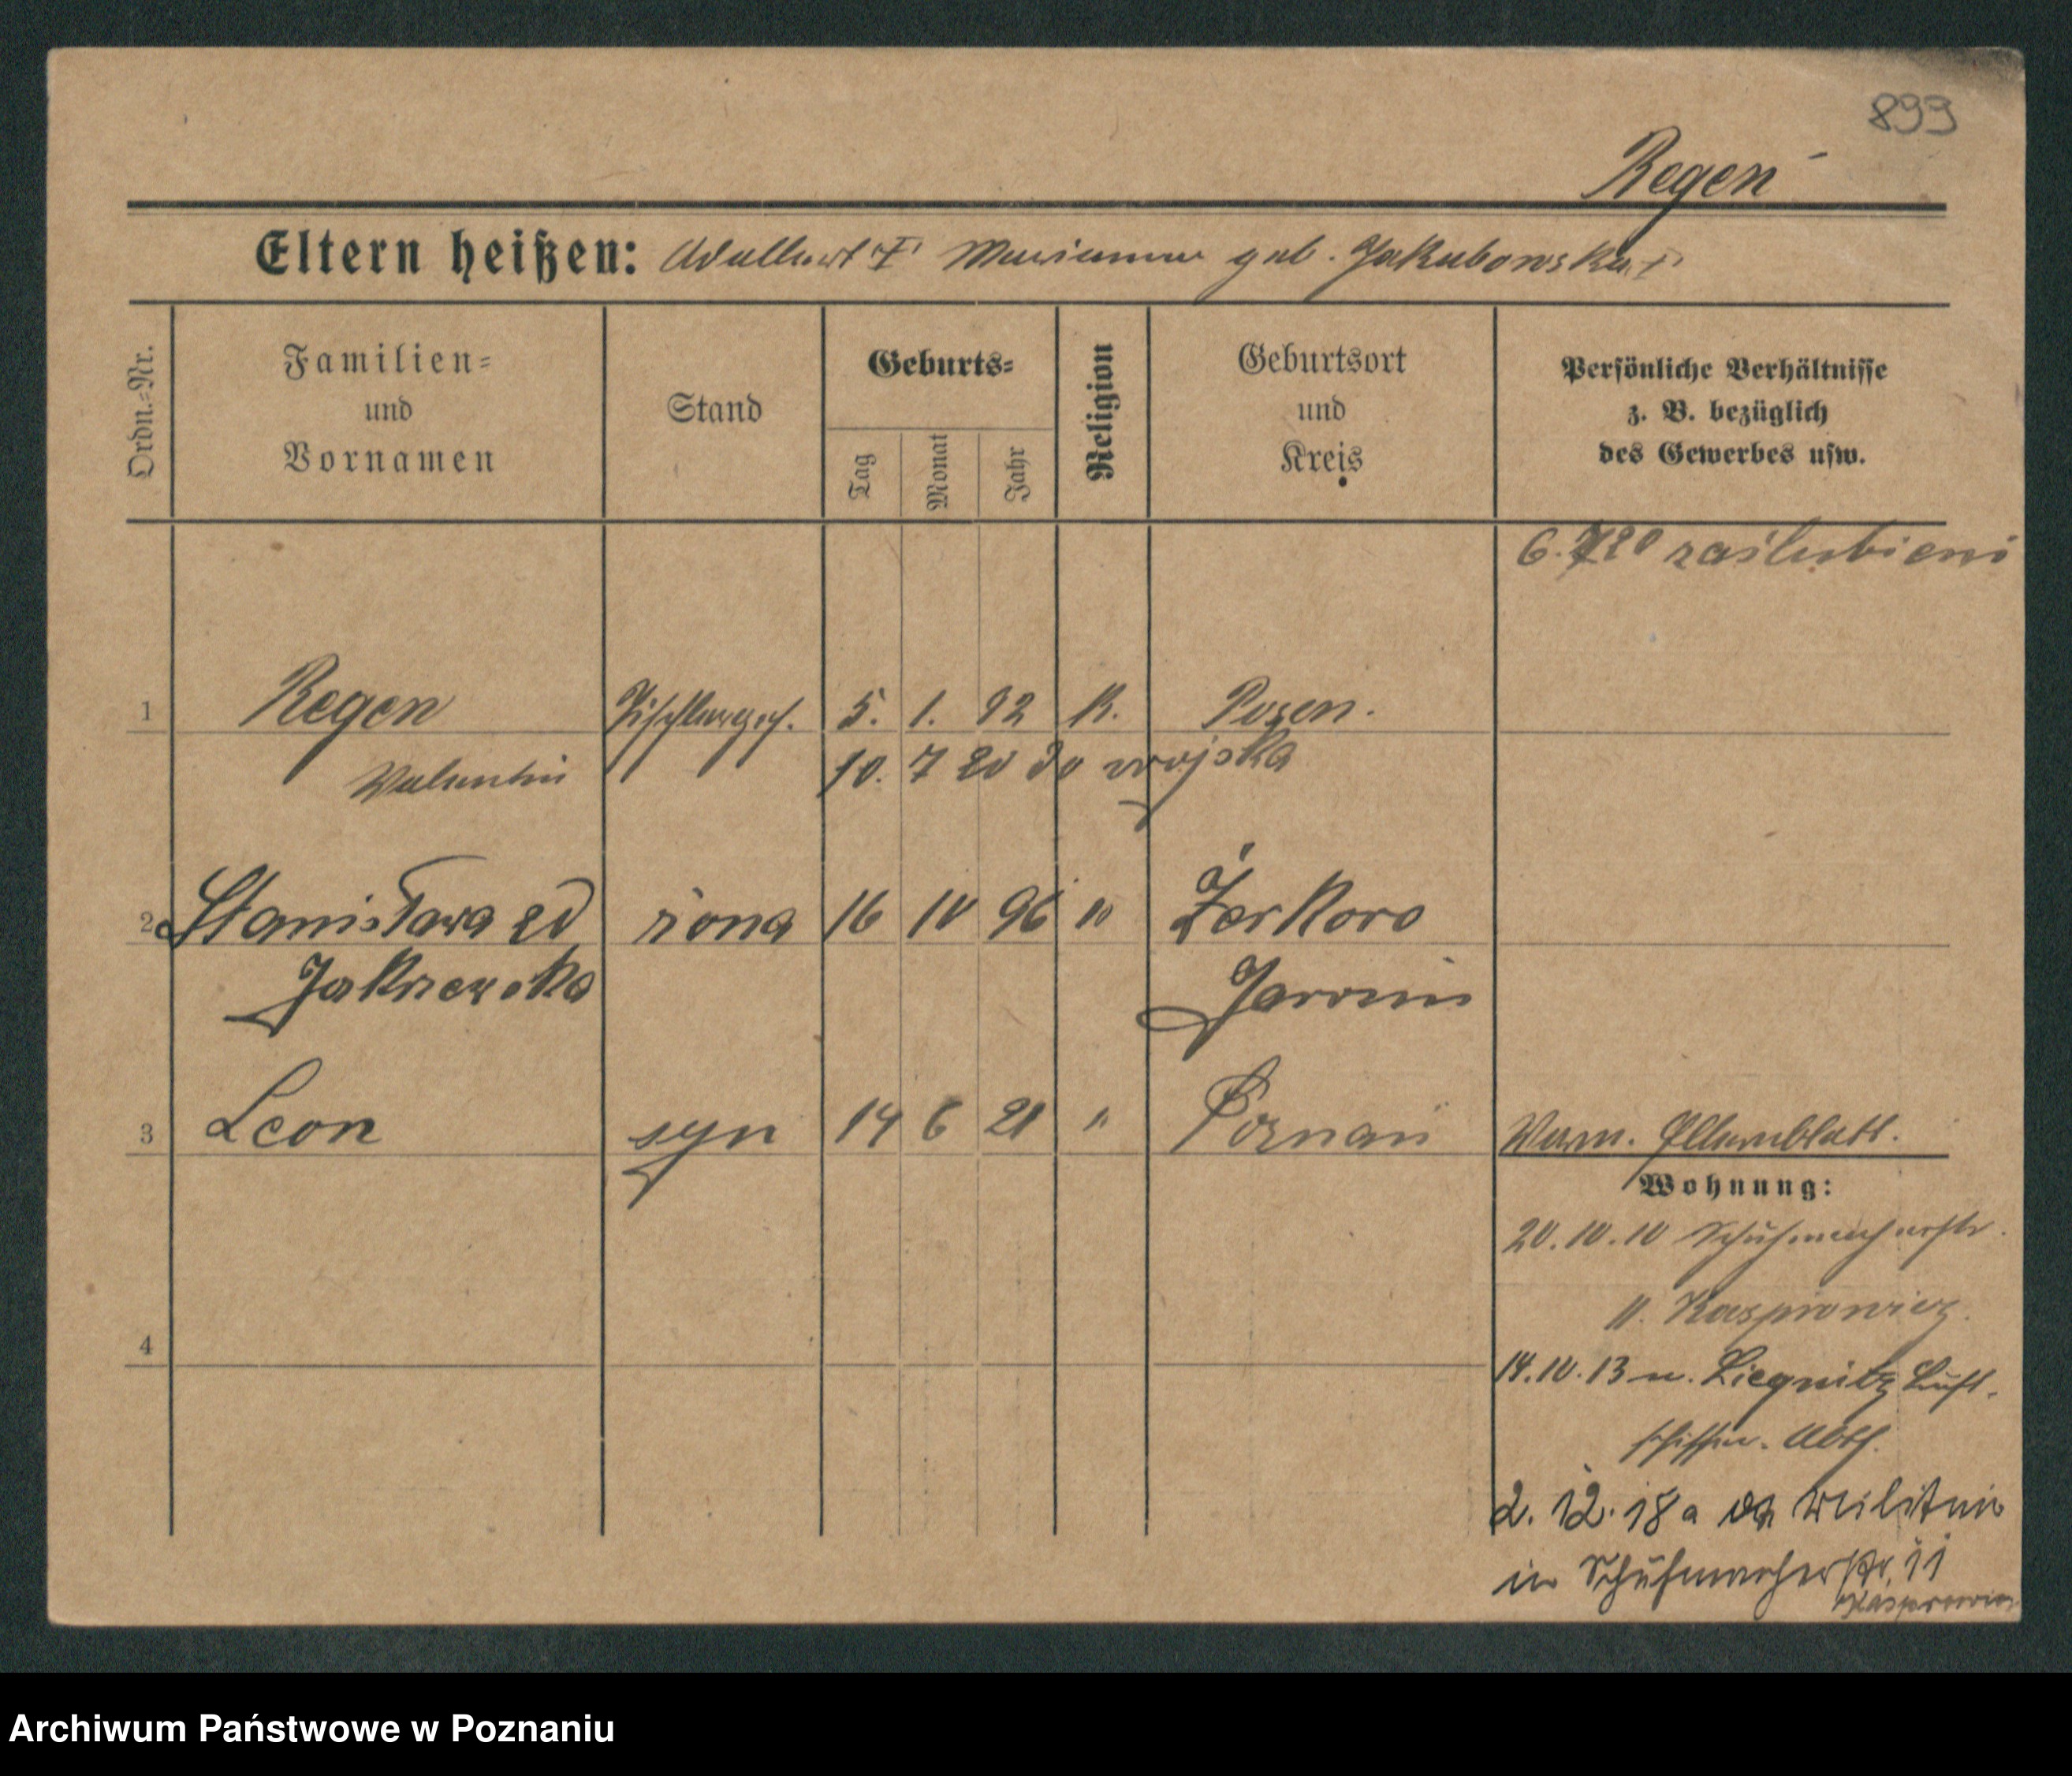 899
Regen
Eltern heißen: Adalbert † Marianna geb. Jakubowska †
Ordn.-Nr.
Familien-
und
Vornamen
Stand
Geburts-
Tag
Monat
Jahr
Religion
Geburtsort
und
Kreis
Persönliche Verhältnisse
z. B. bezüglich
des Gewerbes usw.
6. 7 20 zaślubieni
1 Regen Tischlerges. 5. 1. 92 K. Posen.
Valentin 10. 7 20 do wojska
2 Stanisława zd żona 16 10 96 " Żerkowo
Jakrzewska Jarocin
3 Leon syn 14 6 21 " Poznań
Verm. Elternblatt.
Wohnung:
20.10.10 Schuhmacherstr.
11. Kasprowicz.
4
14.10.13 n. Liegnitz Luft-
schiffer. Abth.
2. 12. 18 a
in Schuhmacherstr. 11
Kasprowicz
Archiwum Państwowe w Poznaniu